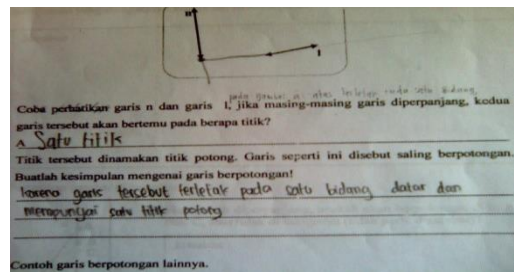 n
l
Coba perhatikan garis n dan garis l, jika masing-masing garis diperpanjang, kedua
garis tersebut akan bertemu pada berapa titik?
A Satu titik
Titik tersebut dinamakan titik potong. Garis seperti ini disebut saling berpotongan.
Buatlah kesimpulan mengenai garis berpotongan!
karena garis tersebut terletak pada satu bidang datar dan
mempunyai satu titik potong
Contoh garis berpotongan lainnya.